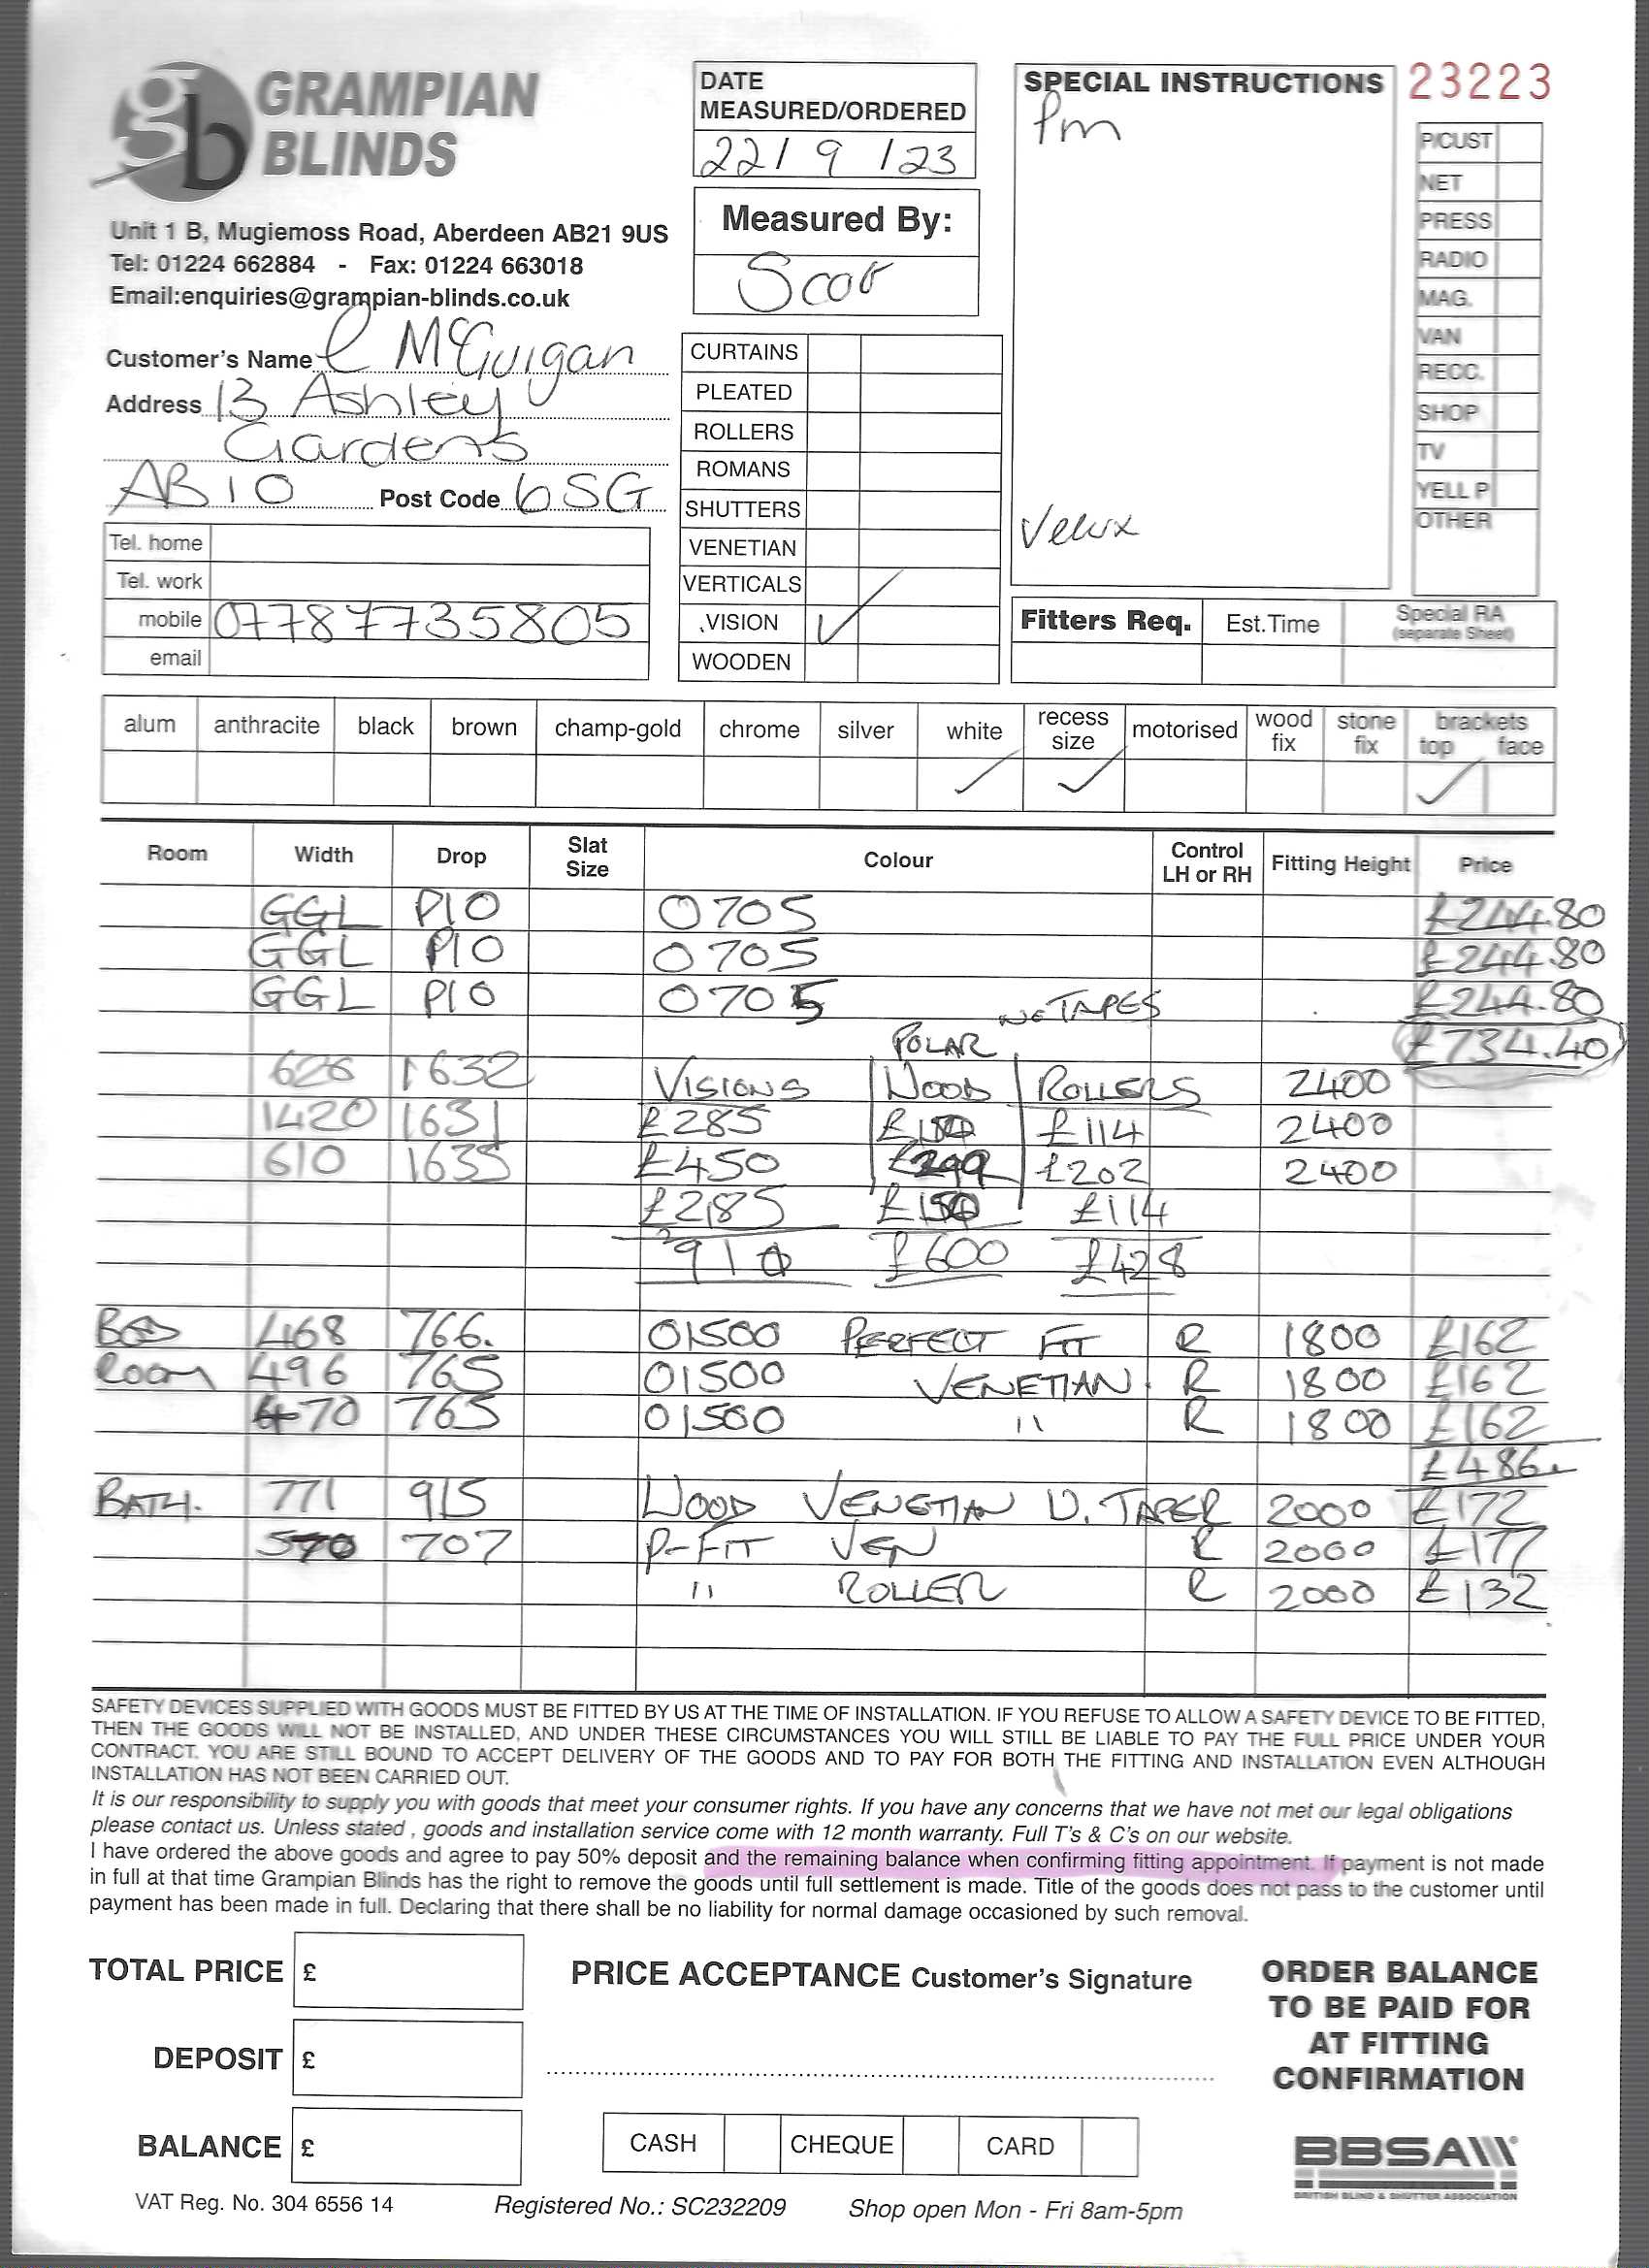 GRAMPIAN BLINDS
Unit 1 B, Mugiemoss Road, Aberdeen AB21 9US
Tel: 01224 662884 - Fax: 01224 663018
Email:enquiries@grampian-blinds.co.uk
Customer's Name C McGuigan
Address 13 Ashley
Gardens
AB10 Post Code 6SG
Tel. home
Tel. work
mobile 07787735805
email
DATE
MEASURED/ORDERED
22/9/23
Measured By:
Scott
CURTAINS
PLEATED
ROLLERS
ROMANS
SHUTTERS
VENETIAN
VERTICALS
VISION ✓
WOODEN
SPECIAL INSTRUCTIONS
Pm
Velux
23223
P/CUST
NET
PRESS
RADIO
MAG.
VAN
RECC.
SHOP
TV
YELL P
OTHER
Fitters Req. Est.Time Special RA
(separate Sheet)
alum anthracite black brown champ-gold chrome silver white recess size motorised wood fix stone fix brackets top face
✓ ✓ ✓
Room Width Drop Slat Size Colour Control LH or RH Fitting Height Price
GGL P10 0705 £244.80
GGL P10 0705 £244.80
GGL P10 0705 £244.80
NO TAPES
POLAR £734.40
626 1632 VISIONS WOOD ROLLERS 2400
1420 1631 £285 £150 £114 2400
610 1635 £450 £299 £202 2400
£285 £150 £114
910 £600 £428
BED 468 766. 01500 PERFECT FIT R 1800 £162
ROOM 496 765 01500 VENETIAN R 1800 £162
470 765 01500 " R 1800 £162
£486
BATH. 771 915 WOOD VENETIAN 2000 £172
570 707 P-FIT VEN R 2000 £177
" ROLLER R 2000 £132
SAFETY DEVICES SUPPLIED WITH GOODS MUST BE FITTED BY US AT THE TIME OF INSTALLATION. IF YOU REFUSE TO ALLOW A SAFETY DEVICE TO BE FITTED,
THEN THE GOODS WILL NOT BE INSTALLED, AND UNDER THESE CIRCUMSTANCES YOU WILL STILL BE LIABLE TO PAY THE FULL PRICE UNDER YOUR
CONTRACT. YOU ARE STILL BOUND TO ACCEPT DELIVERY OF THE GOODS AND TO PAY FOR BOTH THE FITTING AND INSTALLATION EVEN ALTHOUGH
INSTALLATION HAS NOT BEEN CARRIED OUT.
It is our responsibility to supply you with goods that meet your consumer rights. If you have any concerns that we have not met our legal obligations
please contact us. Unless stated , goods and installation service come with 12 month warranty. Full T's & C's on our website.
I have ordered the above goods and agree to pay 50% deposit and the remaining balance when confirming fitting appointment. If payment is not made
in full at that time Grampian Blinds has the right to remove the goods until full settlement is made. Title of the goods does not pass to the customer until
payment has been made in full. Declaring that there shall be no liability for normal damage occasioned by such removal.
TOTAL PRICE £
DEPOSIT £
BALANCE £
PRICE ACCEPTANCE Customer's Signature
CASH CHEQUE CARD
ORDER BALANCE
TO BE PAID FOR
AT FITTING
CONFIRMATION
BBSA
BRITISH BLIND & SHUTTER ASSOCIATION
VAT Reg. No. 304 6556 14 Registered No.: SC232209 Shop open Mon - Fri 8am-5pm